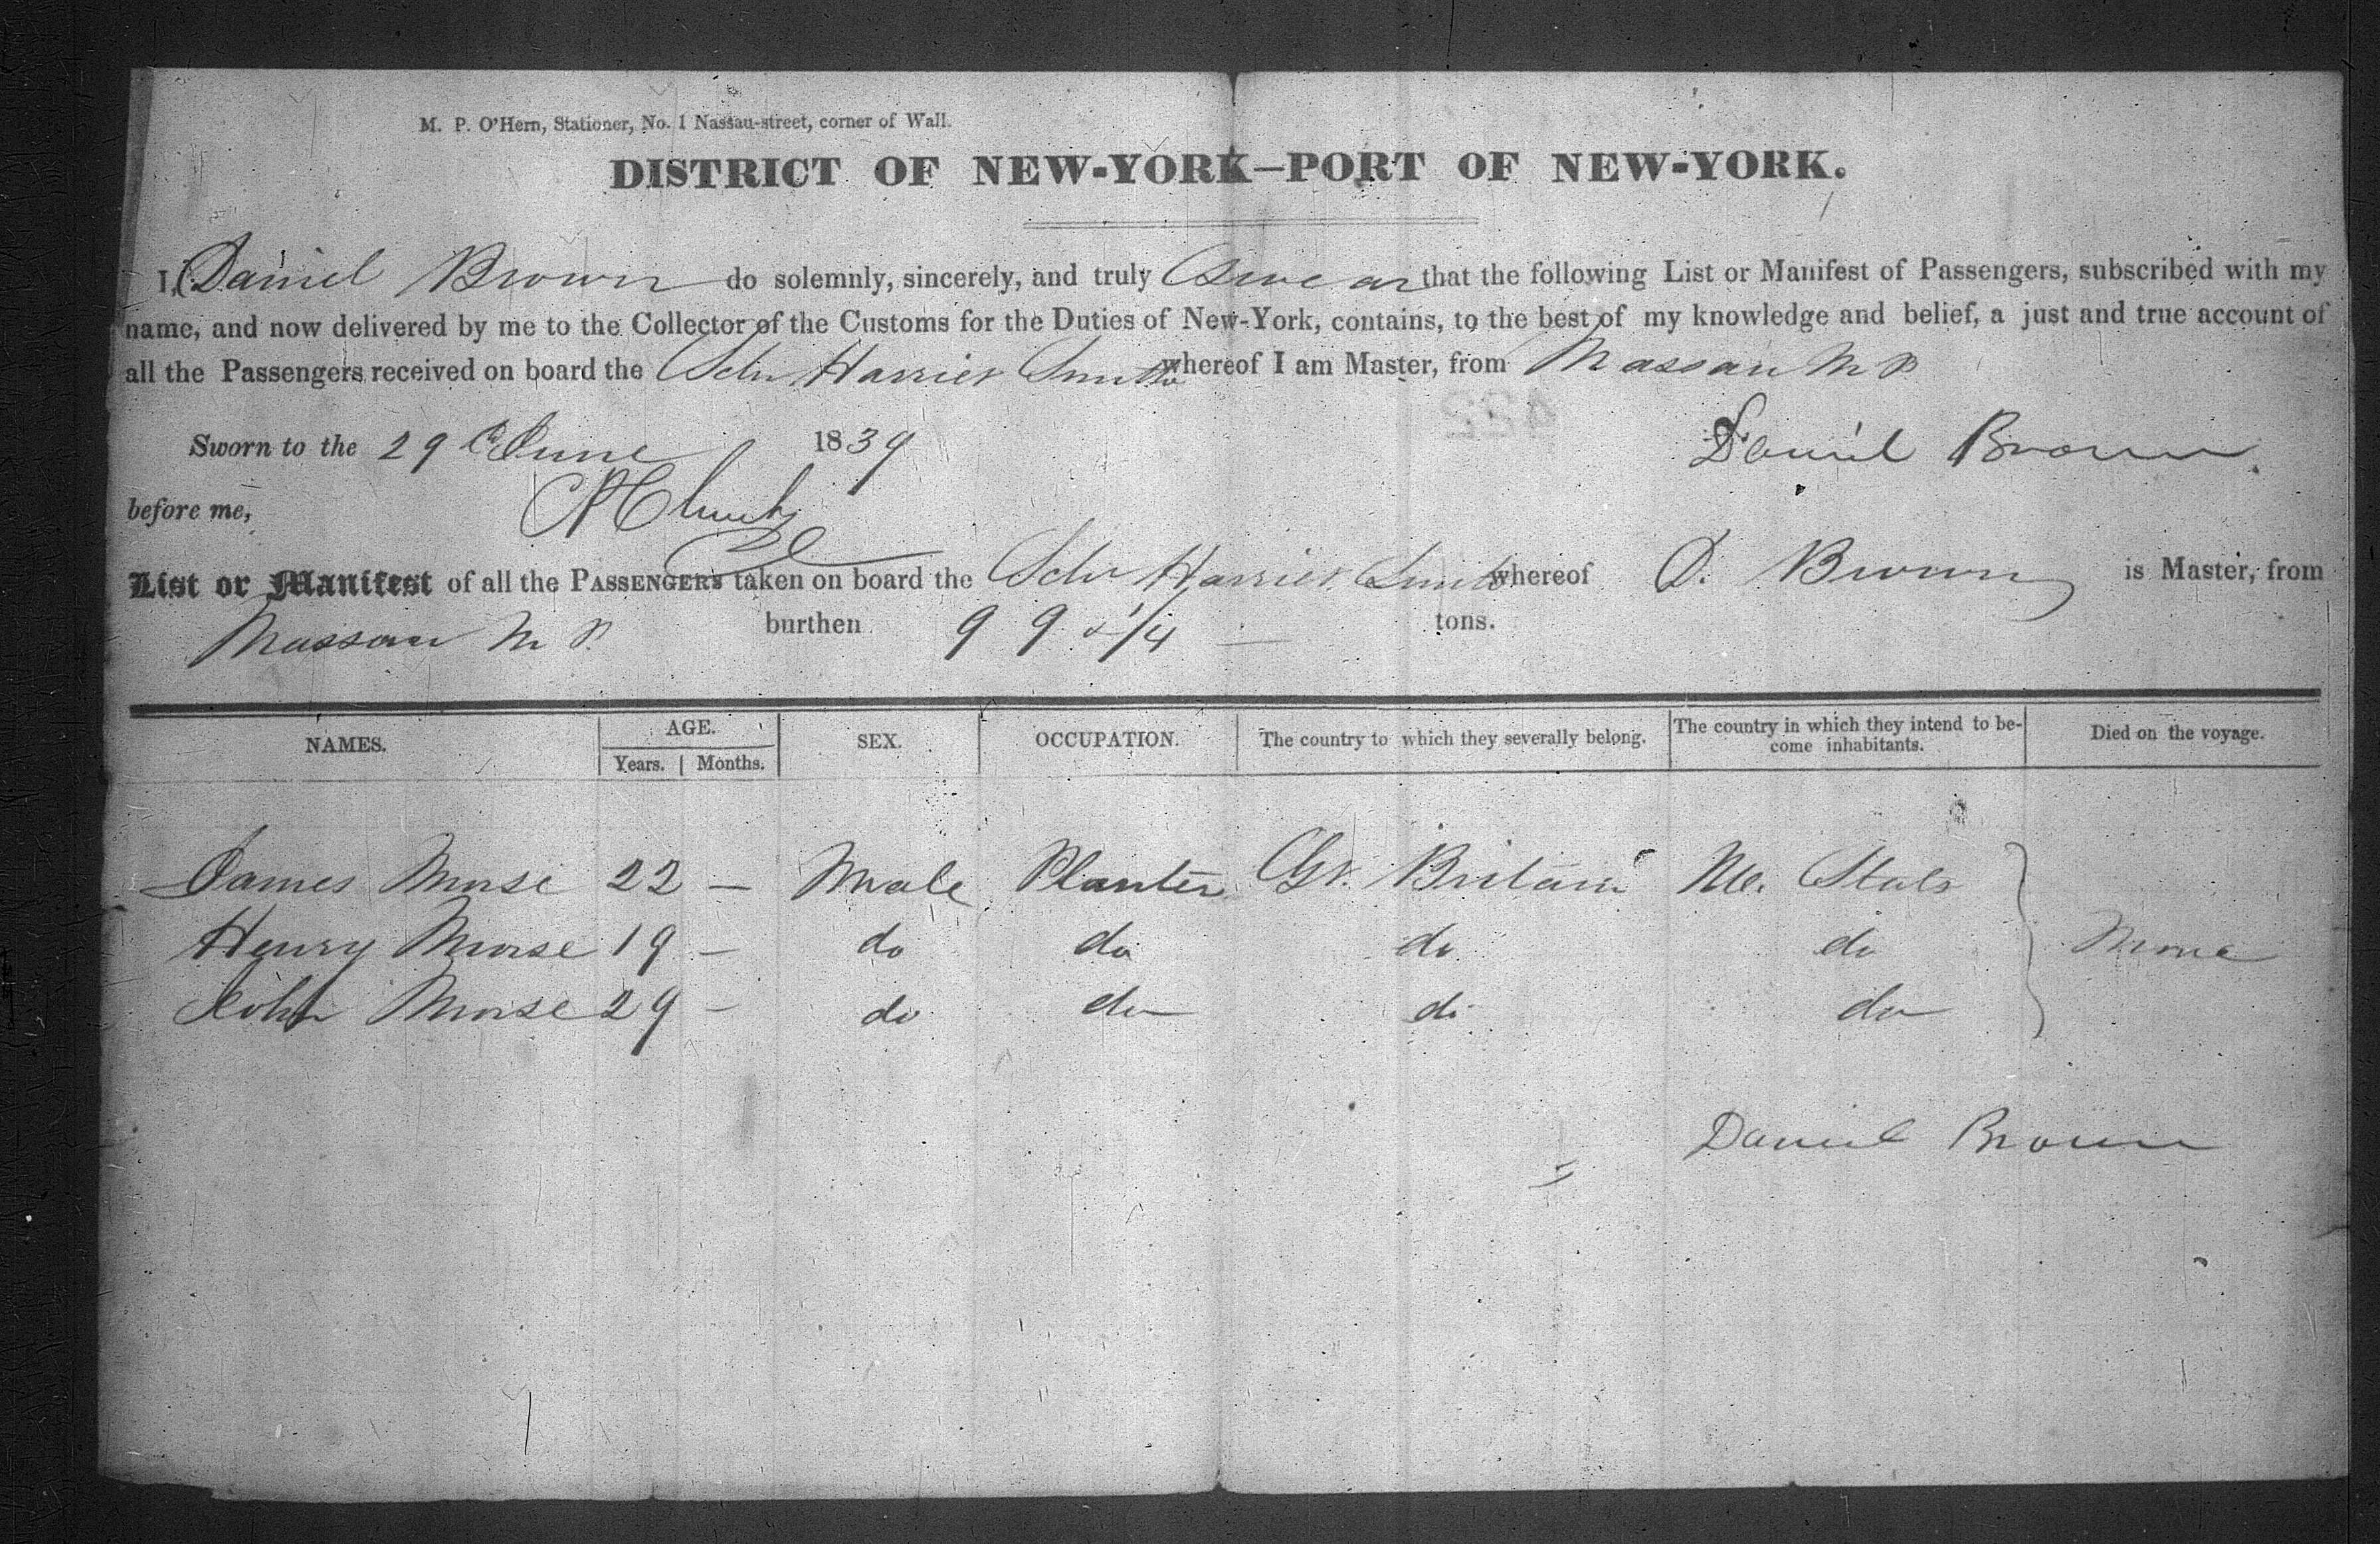 M. P. O'Hern, Stationer, No. 1 Nassau-street, corner of Wall.
DISTRICT OF NEW-YORK—PORT OF NEW-YORK.
I, Daniel Brown do solemnly, sincerely, and truly Swear that the following List or Manifest of Passengers, subscribed with my
name, and now delivered by me to the Collector of the Customs for the Duties of New-York, contains, to the best of my knowledge and belief, a just and true account of
all the Passengers received on board the Schr Harriet Smith whereof I am Master, from Nassau N P
Sworn to the 29 June 1839 Daniel Brown
before me,
List or Manifest of all the PASSENGERS taken on board the Schr Harriet Smith whereof D. Brown is Master, from
Nassau N P. burthen 99 1/4 tons.
NAMES. AGE. SEX. OCCUPATION. The country to which they severally belong. The country in which they intend to be-come inhabitants. Died on the voyage.
Years. Months.
James Morse 22 — Male Planter Gr. Britain U. States
Henry Morse 19 — do do do do None
John Morse 29 — do do do do
Daniel Brown